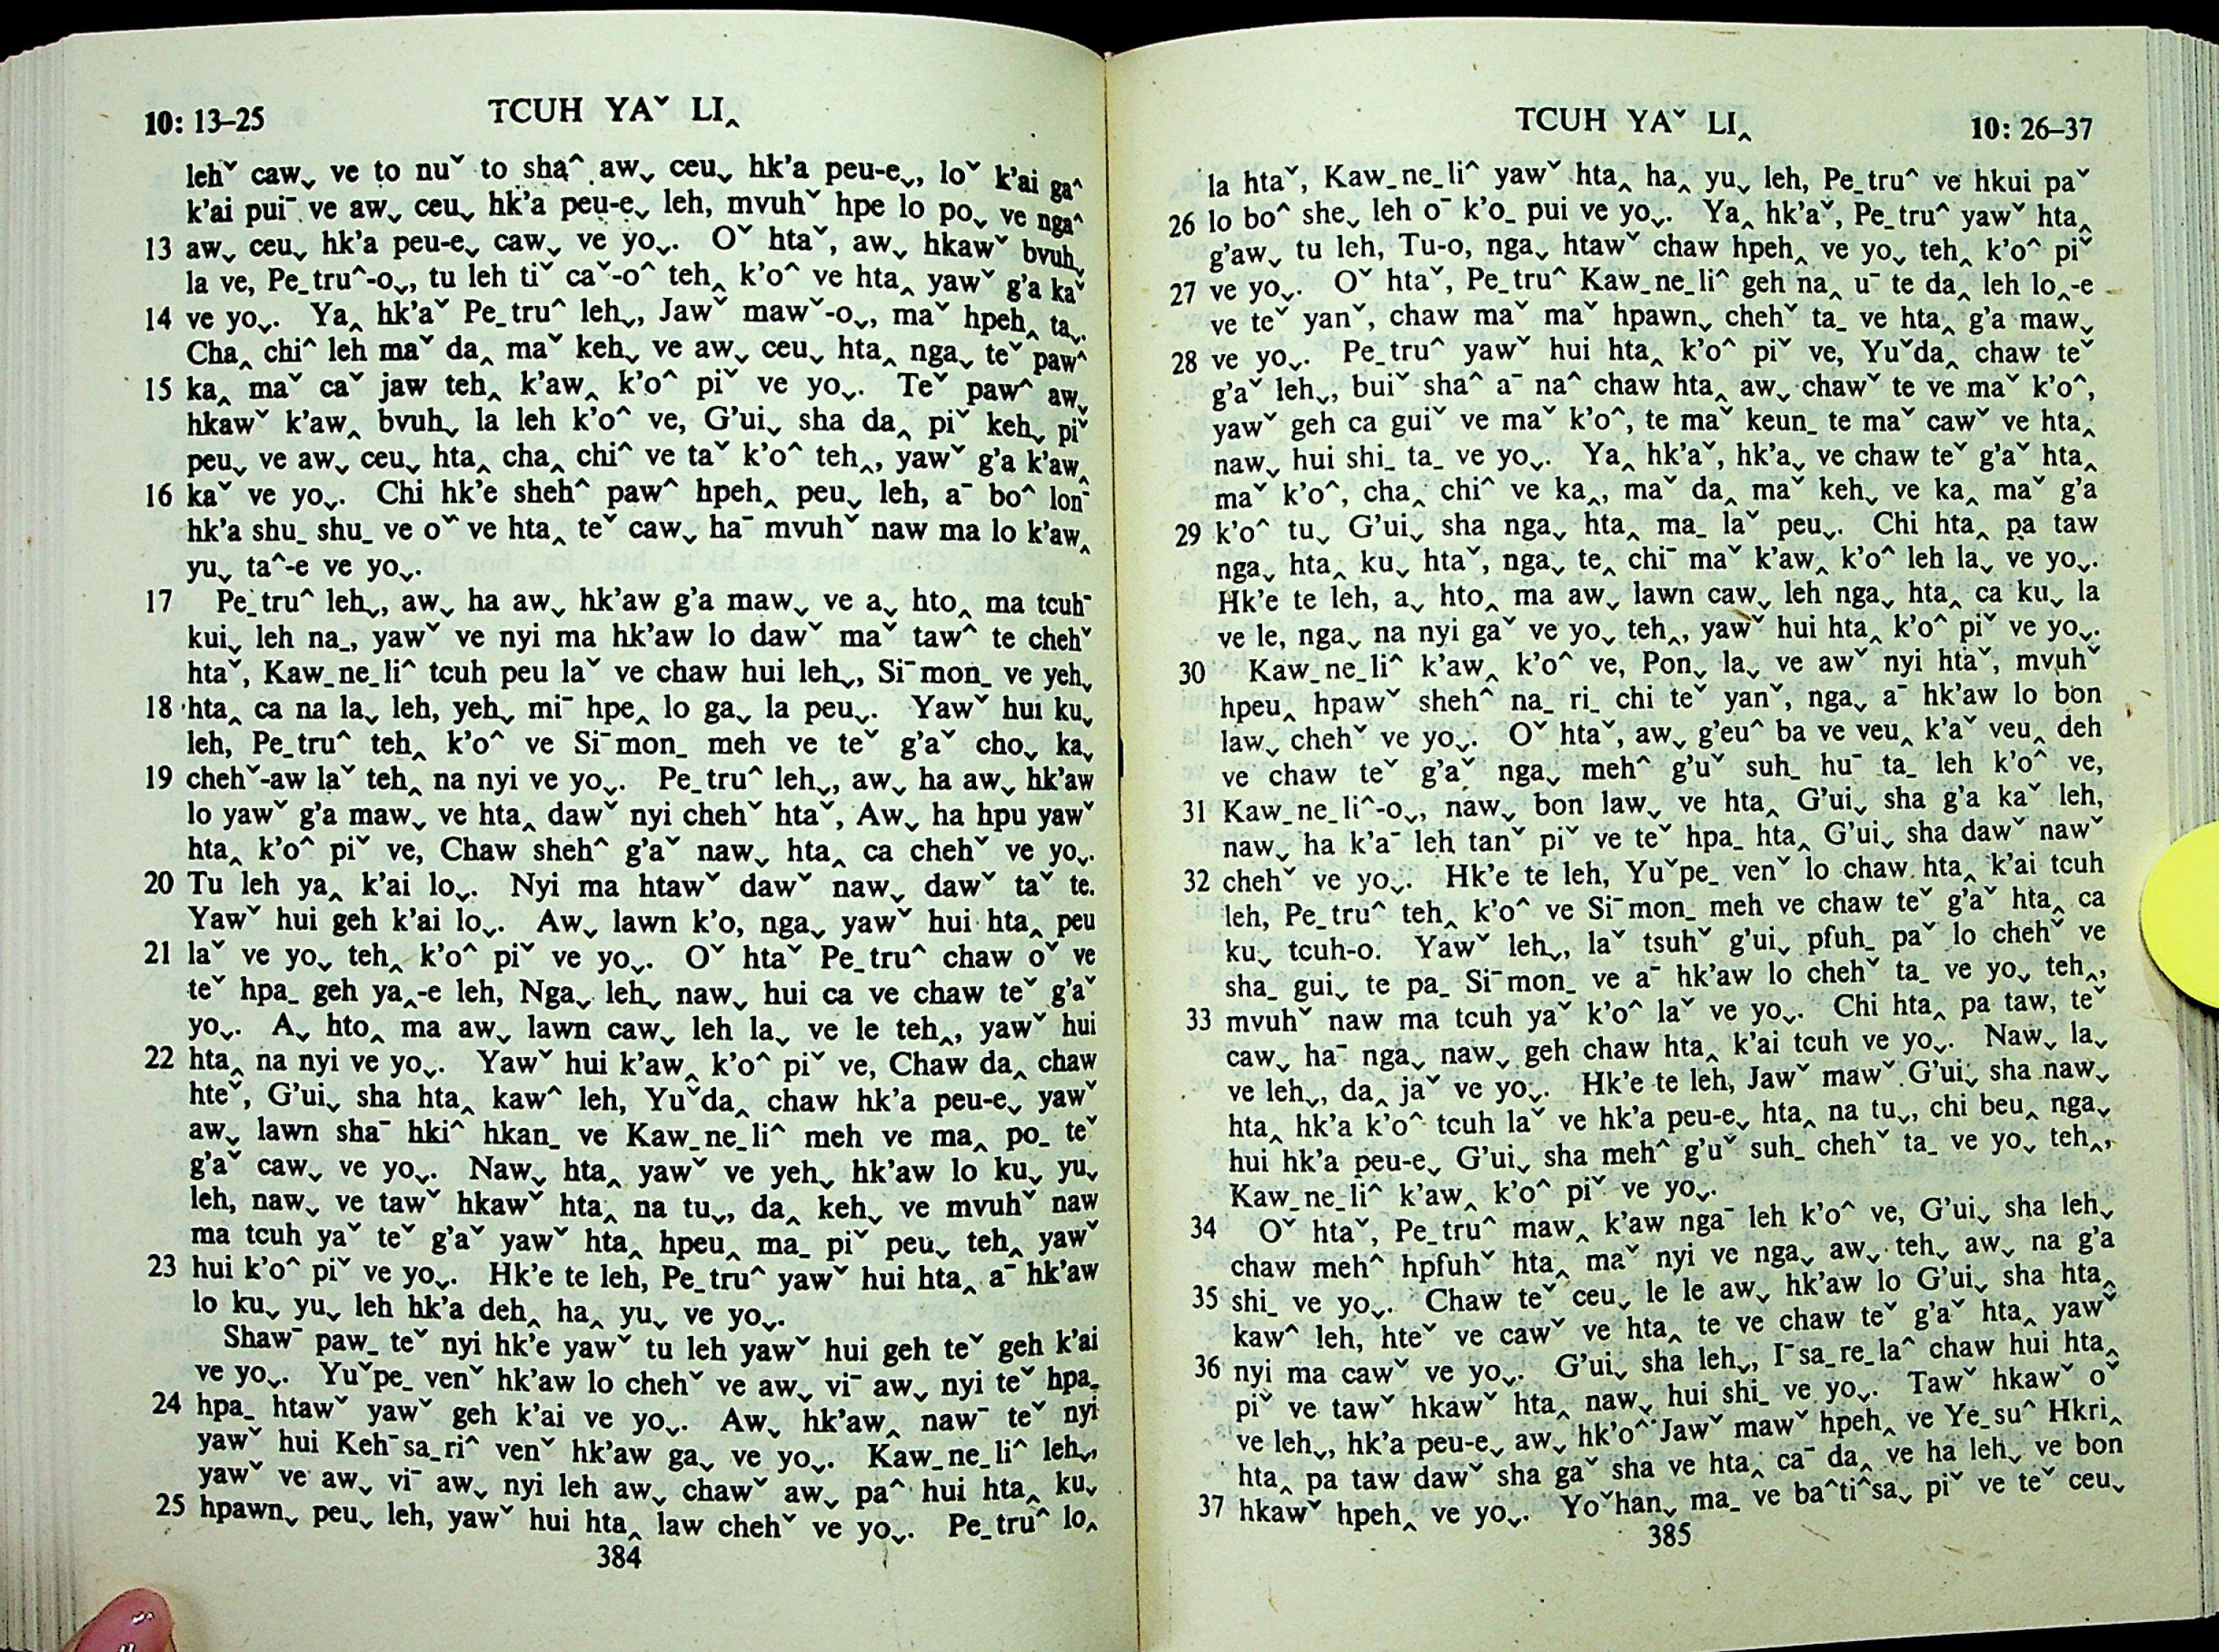 10: 13–25
TCUH YAˇ LI‸
lehˇ caw⌄ ve to nuˇ to sha^ aw⌄ ceu⌄ hk'a peu-e⌄, loˇ k'ai ga^
k'ai puiˉ ve aw⌄ ceu⌄ hk'a peu-e⌄ leh, mvuhˇ hpe lo po⌄ ve nga^
13 aw⌄ ceu⌄ hk'a peu-e⌄ caw⌄ ve yo⌄. Oˇ htaˇ, aw⌄ hkawˇ bvuh⌄
la ve, Pe_tru^-o⌄, tu leh tiˇ caˇ-o^ teh‸ k'o^ ve hta‸ yawˇ g'a kaˇ
14 ve yo⌄. Ya‸ hk'aˇ Pe_tru^ leh⌄, Jawˇ mawˇ-o⌄, maˇ hpeh‸ ta⌄.
Cha‸ chi^ leh maˇ da‸ maˇ keh⌄ ve aw⌄ ceu⌄ hta‸ nga⌄ teˇ paw^
15 ka‸ maˇ caˇ jaw teh‸ k'aw‸ k'o^ piˇ ve yo⌄. Teˇ paw^ aw⌄
hkawˇ k'aw‸ bvuh⌄ la leh k'o^ ve, G'ui⌄ sha da‸ piˇ keh⌄ piˇ
peu⌄ ve aw⌄ ceu⌄ hta‸ cha‸ chi^ ve taˇ k'o^ teh‸, yawˇ g'a k'aw‸
16 kaˇ ve yo⌄. Chi hk'e sheh^ paw^ hpeh‸ peu⌄ leh, aˉ bo^ lonˉ
hk'a shu_ shu_ ve oˇ ve hta‸ teˇ caw⌄ haˉ mvuhˇ naw ma lo k'aw‸
yu⌄ ta^-e ve yo⌄.
17 Pe_tru^ leh⌄, aw⌄ ha aw⌄ hk'aw g'a maw⌄ ve a⌄ hto‸ ma tcuhˉ
kui⌄ leh na_, yawˇ ve nyi ma hk'aw lo dawˇ maˇ taw^ te chehˇ
htaˇ, Kaw_ne_li^ tcuh peu laˇ ve chaw hui leh⌄, Siˉmon_ ve yeh⌄
18 hta‸ ca na la⌄ leh, yeh⌄ miˉ hpe‸ lo ga⌄ la peu⌄. Yawˇ hui ku⌄
leh, Pe_tru^ teh‸ k'o^ ve Siˉmon_ meh ve teˇ g'aˇ cho⌄ ka⌄
19 chehˇ-aw laˇ teh‸ na nyi ve yo⌄. Pe_tru^ leh⌄, aw⌄ ha aw⌄ hk'aw
lo yawˇ g'a maw⌄ ve hta‸ dawˇ nyi chehˇ htaˇ, Aw⌄ ha hpu yawˇ
hta‸ k'o^ piˇ ve, Chaw sheh^ g'aˇ naw⌄ hta‸ ca chehˇ ve yo⌄.
20 Tu leh ya‸ k'ai lo⌄. Nyi ma htawˇ dawˇ naw⌄ dawˇ taˇ te.
Yawˇ hui geh k'ai lo⌄. Aw⌄ lawn k'o, nga⌄ yawˇ hui hta‸ peu
21 laˇ ve yo⌄ teh‸ k'o^ piˇ ve yo⌄. Oˇ htaˇ Pe_tru^ chaw oˇ ve
teˇ hpa_ geh ya‸-e leh, Nga⌄ leh⌄ naw⌄ hui ca ve chaw teˇ g'aˇ
yo⌄. A⌄ hto‸ ma aw⌄ lawn caw⌄ leh la⌄ ve le teh‸, yawˇ hui
22 hta‸ na nyi ve yo⌄. Yawˇ hui k'aw‸ k'o^ piˇ ve, Chaw da‸ chaw
hteˇ, G'ui⌄ sha hta‸ kaw^ leh, Yuˇda‸ chaw hk'a peu-e⌄ yawˇ
aw⌄ lawn shaˉ hki^ hkan_ ve Kaw_ne_li^ meh ve ma‸ po_ teˇ
g'aˇ caw⌄ ve yo⌄. Naw⌄ hta‸ yawˇ ve yeh⌄ hk'aw lo ku⌄ yu⌄
leh, naw⌄ ve tawˇ hkawˇ hta‸ na tu⌄, da‸ keh⌄ ve mvuhˇ naw
ma tcuh yaˇ teˇ g'aˇ yawˇ hta‸ hpeu‸ ma_ piˇ peu⌄ teh‸ yawˇ
23 hui k'o^ piˇ ve yo⌄. Hk'e te leh, Pe_tru^ yawˇ hui hta‸ aˉ hk'aw
lo ku⌄ yu⌄ leh hk'a deh‸ ha‸ yu⌄ ve yo⌄.
Shawˉ paw_ teˇ nyi hk'e yawˇ tu leh yawˇ hui geh teˇ geh k'ai
ve yo⌄. Yuˇpe_ venˇ hk'aw lo chehˇ ve aw⌄ viˉ aw⌄ nyi teˇ hpa_
24 hpa_ htawˇ yawˇ geh k'ai ve yo⌄. Aw⌄ hk'aw‸ nawˉ teˇ nyi
yawˇ hui Kehˉsa_ri^ venˇ hk'aw ga⌄ ve yo⌄. Kaw_ne_li^ leh⌄,
yawˇ ve aw⌄ viˉ aw⌄ nyi leh aw⌄ chawˇ aw⌄ pa^ hui hta‸ ku⌄
25 hpawn⌄ peu⌄ leh, yawˇ hui hta‸ law chehˇ ve yo⌄. Pe_tru^ lo‸
384
TCUH YAˇ LI‸
10: 26–37
la htaˇ, Kaw_ne_li^ yawˇ hta‸ ha‸ yu⌄ leh, Pe_tru^ ve hkui paˇ
26 lo bo^ she⌄ leh oˉ k'o_ pui ve yo⌄. Ya‸ hk'aˇ, Pe_tru^ yawˇ hta‸
g'aw⌄ tu leh, Tu-o, nga⌄ htawˇ chaw hpeh‸ ve yo⌄ teh‸ k'o^ piˇ
27 ve yo⌄. Oˇ htaˇ, Pe_tru^ Kaw_ne_li^ geh na‸ uˉ te da‸ leh lo‸-e
ve teˇ yanˇ, chaw maˇ maˇ hpawn⌄ chehˇ ta_ ve hta‸ g'a maw⌄
28 ve yo⌄. Pe_tru^ yawˇ hui hta‸ k'o^ piˇ ve, Yuˇda‸ chaw teˇ
g'aˇ leh⌄, buiˇ sha^ aˉ na^ chaw hta‸ aw⌄ chawˇ te ve maˇ k'o^,
yawˇ geh ca guiˇ ve maˇ k'o^, te maˇ keun_ te maˇ cawˇ ve hta‸
naw⌄ hui shi_ ta_ ve yo⌄. Ya‸ hk'aˇ, hk'a⌄ ve chaw teˇ g'aˇ hta‸
maˇ k'o^, cha‸ chi^ ve ka‸, maˇ da‸ maˇ keh⌄ ve ka‸ maˇ g'a
29 k'o^ tu⌄ G'ui⌄ sha nga⌄ hta‸ ma_ laˇ peu⌄. Chi hta‸ pa taw
nga⌄ hta‸ ku⌄ htaˇ, nga⌄ te‸ chiˉ maˇ k'aw‸ k'o^ leh la⌄ ve yo⌄.
Hk'e te leh, a⌄ hto‸ ma aw⌄ lawn caw⌄ leh nga⌄ hta‸ ca ku⌄ la
ve le, nga⌄ na nyi gaˇ ve yo⌄ teh‸, yawˇ hui hta‸ k'o^ piˇ ve yo⌄.
30 Kaw_ne_li^ k'aw‸ k'o^ ve, Pon⌄ la⌄ ve awˇ nyi htaˇ, mvuhˇ
hpeu‸ hpawˇ sheh^ na_ ri_ chi teˇ yanˇ, nga⌄ aˉ hk'aw lo bon
law⌄ chehˇ ve yo⌄. Oˇ htaˇ, aw⌄ g'eu^ ba ve veu‸ k'aˇ veu‸ deh
ve chaw teˇ g'aˇ nga⌄ meh^ g'uˇ suh_ huˉ ta_ leh k'o^ ve,
31 Kaw_ne_li^-o⌄, naw⌄ bon law⌄ ve hta‸ G'ui⌄ sha g'a kaˇ leh,
naw⌄ ha k'aˉ leh tanˇ piˇ ve teˇ hpa_ hta‸ G'ui⌄ sha dawˇ nawˇ
32 chehˇ ve yo⌄. Hk'e te leh, Yuˇpe_ venˇ lo chaw hta‸ k'ai tcuh
leh, Pe_tru^ teh‸ k'o^ ve Siˉmon_ meh ve chaw teˇ g'aˇ hta‸ ca
ku⌄ tcuh-o. Yawˇ leh⌄, laˇ tsuhˇ g'ui⌄ pfuh_ paˇ lo chehˇ ve
sha_ gui⌄ te pa_ Siˉmon_ ve aˉ hk'aw lo chehˇ ta_ ve yo⌄ teh‸,
33 mvuhˇ naw ma tcuh yaˇ k'o^ laˇ ve yo⌄. Chi hta‸ pa taw, teˇ
caw⌄ haˉ nga⌄ naw⌄ geh chaw hta‸ k'ai tcuh ve yo⌄. Naw⌄ la⌄
ve leh⌄, da‸ jaˇ ve yo⌄. Hk'e te leh, Jawˇ mawˇ G'ui⌄ sha naw⌄
hta‸ hk'a k'o^ tcuh laˇ ve hk'a peu-e⌄ hta‸ na tu⌄, chi beu‸ nga⌄
hui hk'a peu-e⌄ G'ui⌄ sha meh^ g'uˇ suh_ chehˇ ta_ ve yo⌄ teh‸,
Kaw_ne_li^ k'aw‸ k'o^ piˇ ve yo⌄.
34 Oˇ htaˇ, Pe_tru^ maw‸ k'aw ngaˉ leh k'o^ ve, G'ui⌄ sha leh⌄
chaw meh^ hpfuhˇ hta‸ maˇ nyi ve nga⌄ aw⌄ teh⌄ aw⌄ na g'a
35 shi_ ve yo⌄. Chaw teˇ ceu⌄ le le aw⌄ hk'aw lo G'ui⌄ sha hta‸
kaw^ leh, hteˇ ve cawˇ ve hta‸ te ve chaw teˇ g'aˇ hta‸ yawˇ
36 nyi ma cawˇ ve yo⌄. G'ui⌄ sha leh⌄, Iˉsa_re_la^ chaw hui hta‸
piˇ ve tawˇ hkawˇ hta‸ naw⌄ hui shi_ ve yo⌄. Tawˇ hkawˇ oˇ
ve leh⌄, hk'a peu-e⌄ aw⌄ hk'o^ Jawˇ mawˇ hpeh‸ ve Ye_su^ Hkri‸
hta‸ pa taw dawˇ sha gaˇ sha ve hta‸ caˉ da‸ ve ha leh⌄ ve bon
37 hkawˇ hpeh‸ ve yo⌄. Yoˇhan⌄ ma_ ve ba^ti^sa⌄ piˇ ve teˇ ceu⌄
385